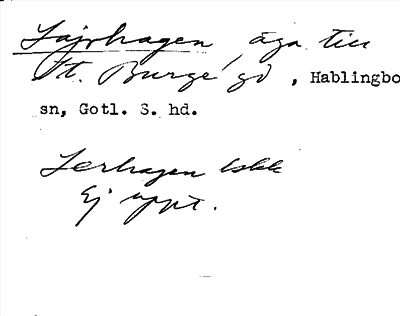 Lajrhagen, äga till
St. Burge gd, Hablingbo
sn, Gotl. S. hd.
Lerhagen
Ej uppt.